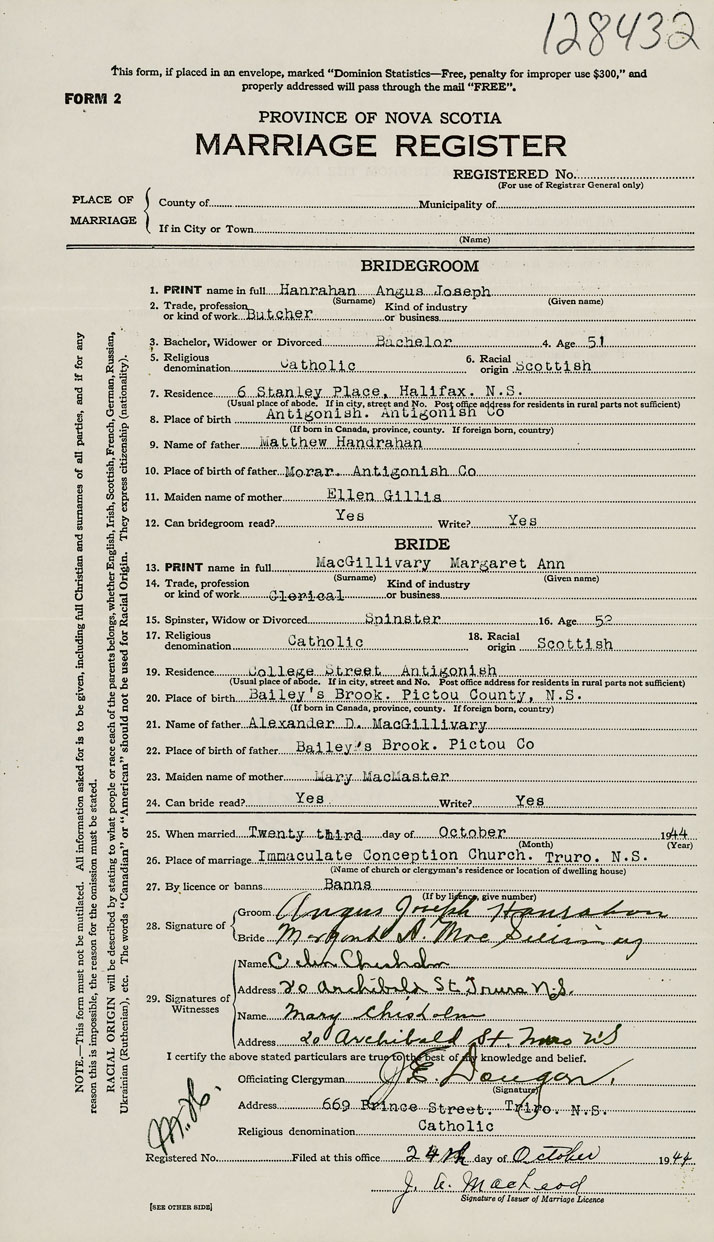 128432
This form, if placed in an envelope, marked “Dominion Statistics—Free, penalty for improper use $300,” and
properly addressed will pass through the mail “FREE”.
FORM 2
PROVINCE OF NOVA SCOTIA
MARRIAGE REGISTER
REGISTERED No.
(For use of Registrar General only)
PLACE OF MARRIAGE
County of Municipality of
If in City or Town
(Name)
BRIDEGROOM
1. PRINT name in full Hanrahan Angus Joseph
(Surname) (Given name)
2. Trade, profession or kind of work Butcher Kind of industry or business
3. Bachelor, Widower or Divorced Bachelor 4. Age 51
5. Religious denomination Catholic 6. Racial origin Scottish
7. Residence 6 Stanley Place, Halifax. N.S.
(Usual place of abode. If in city, street and No. Post office address for residents in rural parts not sufficient)
8. Place of birth Antigonish. Antigonish Co
(If born in Canada, province, county. If foreign born, country)
9. Name of father Matthew Handrahan
10. Place of birth of father Morar. Antigonish Co
11. Maiden name of mother Ellen Gillis
12. Can bridegroom read? Yes Write? Yes
BRIDE
13. PRINT name in full MacGillivary Margaret Ann
(Surname) (Given name)
14. Trade, profession or kind of work Clerical Kind of industry or business
15. Spinster, Widow or Divorced Spinster 16. Age 52
17. Religious denomination Catholic 18. Racial origin Scottish
19. Residence College Street Antigonish
(Usual place of abode. If in city, street and No. Post office address for residents in rural parts not sufficient)
20. Place of birth Bailey's Brook. Pictou County, N.S.
(If born in Canada, province, county. If foreign born, country)
21. Name of father Alexander D. MacGillivary
22. Place of birth of father Bailey's Brook. Pictou Co
23. Maiden name of mother Mary MacMaster
24. Can bride read? Yes Write? Yes
25. When married Twenty third day of October 1944
(Month) (Year)
26. Place of marriage Immaculate Conception Church. Truro. N.S.
(Name of church or clergyman's residence or location of dwelling house)
27. By licence or banns Banns
(If by licence, give number)
28. Signature of
Groom Angus Joseph Hanrahan
Bride Margaret A.
29. Signatures of Witnesses
Name Chisholm
Address 20 Archibald St. Truro N.S.
Name Mary Chisholm
Address 20 Archibald St. Truro N S
I certify the above stated particulars are true to the best of my knowledge and belief.
Officiating Clergyman J. E.
(Signature)
Address 669 Prince Street. Truro. N.S.
Religious denomination Catholic
Registered No. Filed at this office 24th day of October 1944
J. A. MacLeod
Signature of Issuer of Marriage Licence
[SEE OTHER SIDE]
NOTE.—This form must not be mutilated. All information asked for is to be given, including full Christian and surnames of all parties, and if for any
reason this is impossible, the reason for the omission must be stated.
RACIAL ORIGIN will be described by stating to what people or race each of the parents belongs, whether English, Irish, Scottish, French, German, Russian,
Ukrainian (Ruthenian), etc. The words “Canadian” or “American” should not be used for Racial Origin. They express citizenship (nationality).